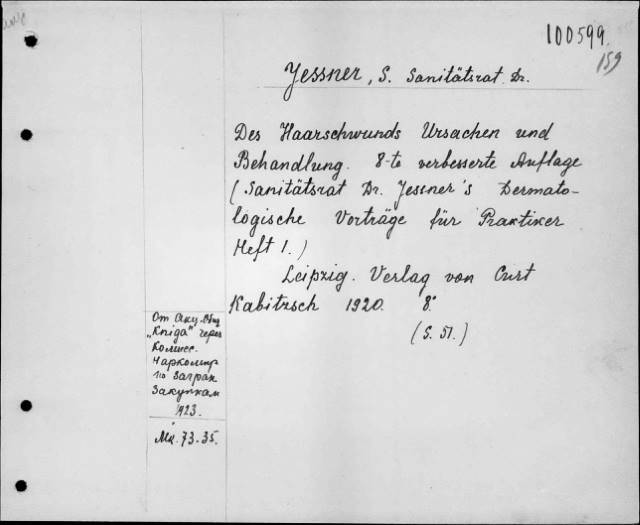 100599.
159
Jessner, S. Sanitätsrat Dr.
Des Haarschwunds Ursachen und
Behandlung. 8-te verbesserte Auflage
(Sanitätsrat Dr. Jessner's Dermato-
logische Vorträge für Praktiker
Heft 1.)
Leipzig. Verlag von Curt
Kabitzsch 1920. 8°.
(S. 51.)
От Акц. Общ
„Kniga" через
Комисс.
Наркомвнр
по Загран
Закупкам
1923.
Мк. 73.35.